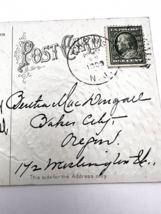 POST CARD
U.S. POSTAGE
ONE CENT
1909
N.J.
Bertha MacDougall
Baker City
Oregon
1712 Washington St.,
This side for the Address only